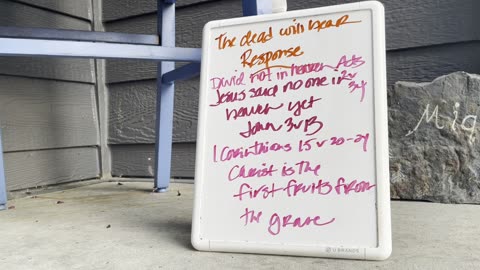 The dead will hear
Response
David not in heaven Acts
2v
34
Jesus said no one in
heaven yet
John 3v13
1 Corinthians 15 v 20-24
Christ is the
first fruits from
the grave